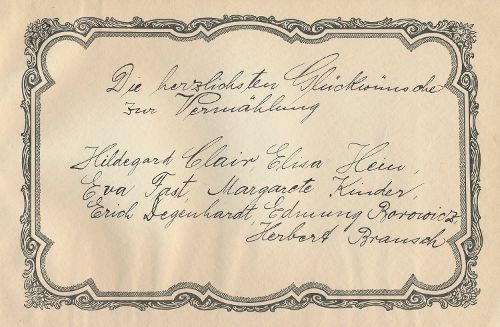 Die herzlichsten Glückwünsche
zur Vermählung
Hildegard Clair, Elisa Hein,
Eva Fast, Margarete Kinder,
Erich Degenhardt, Edmung Borowicz
Herbert Brausch